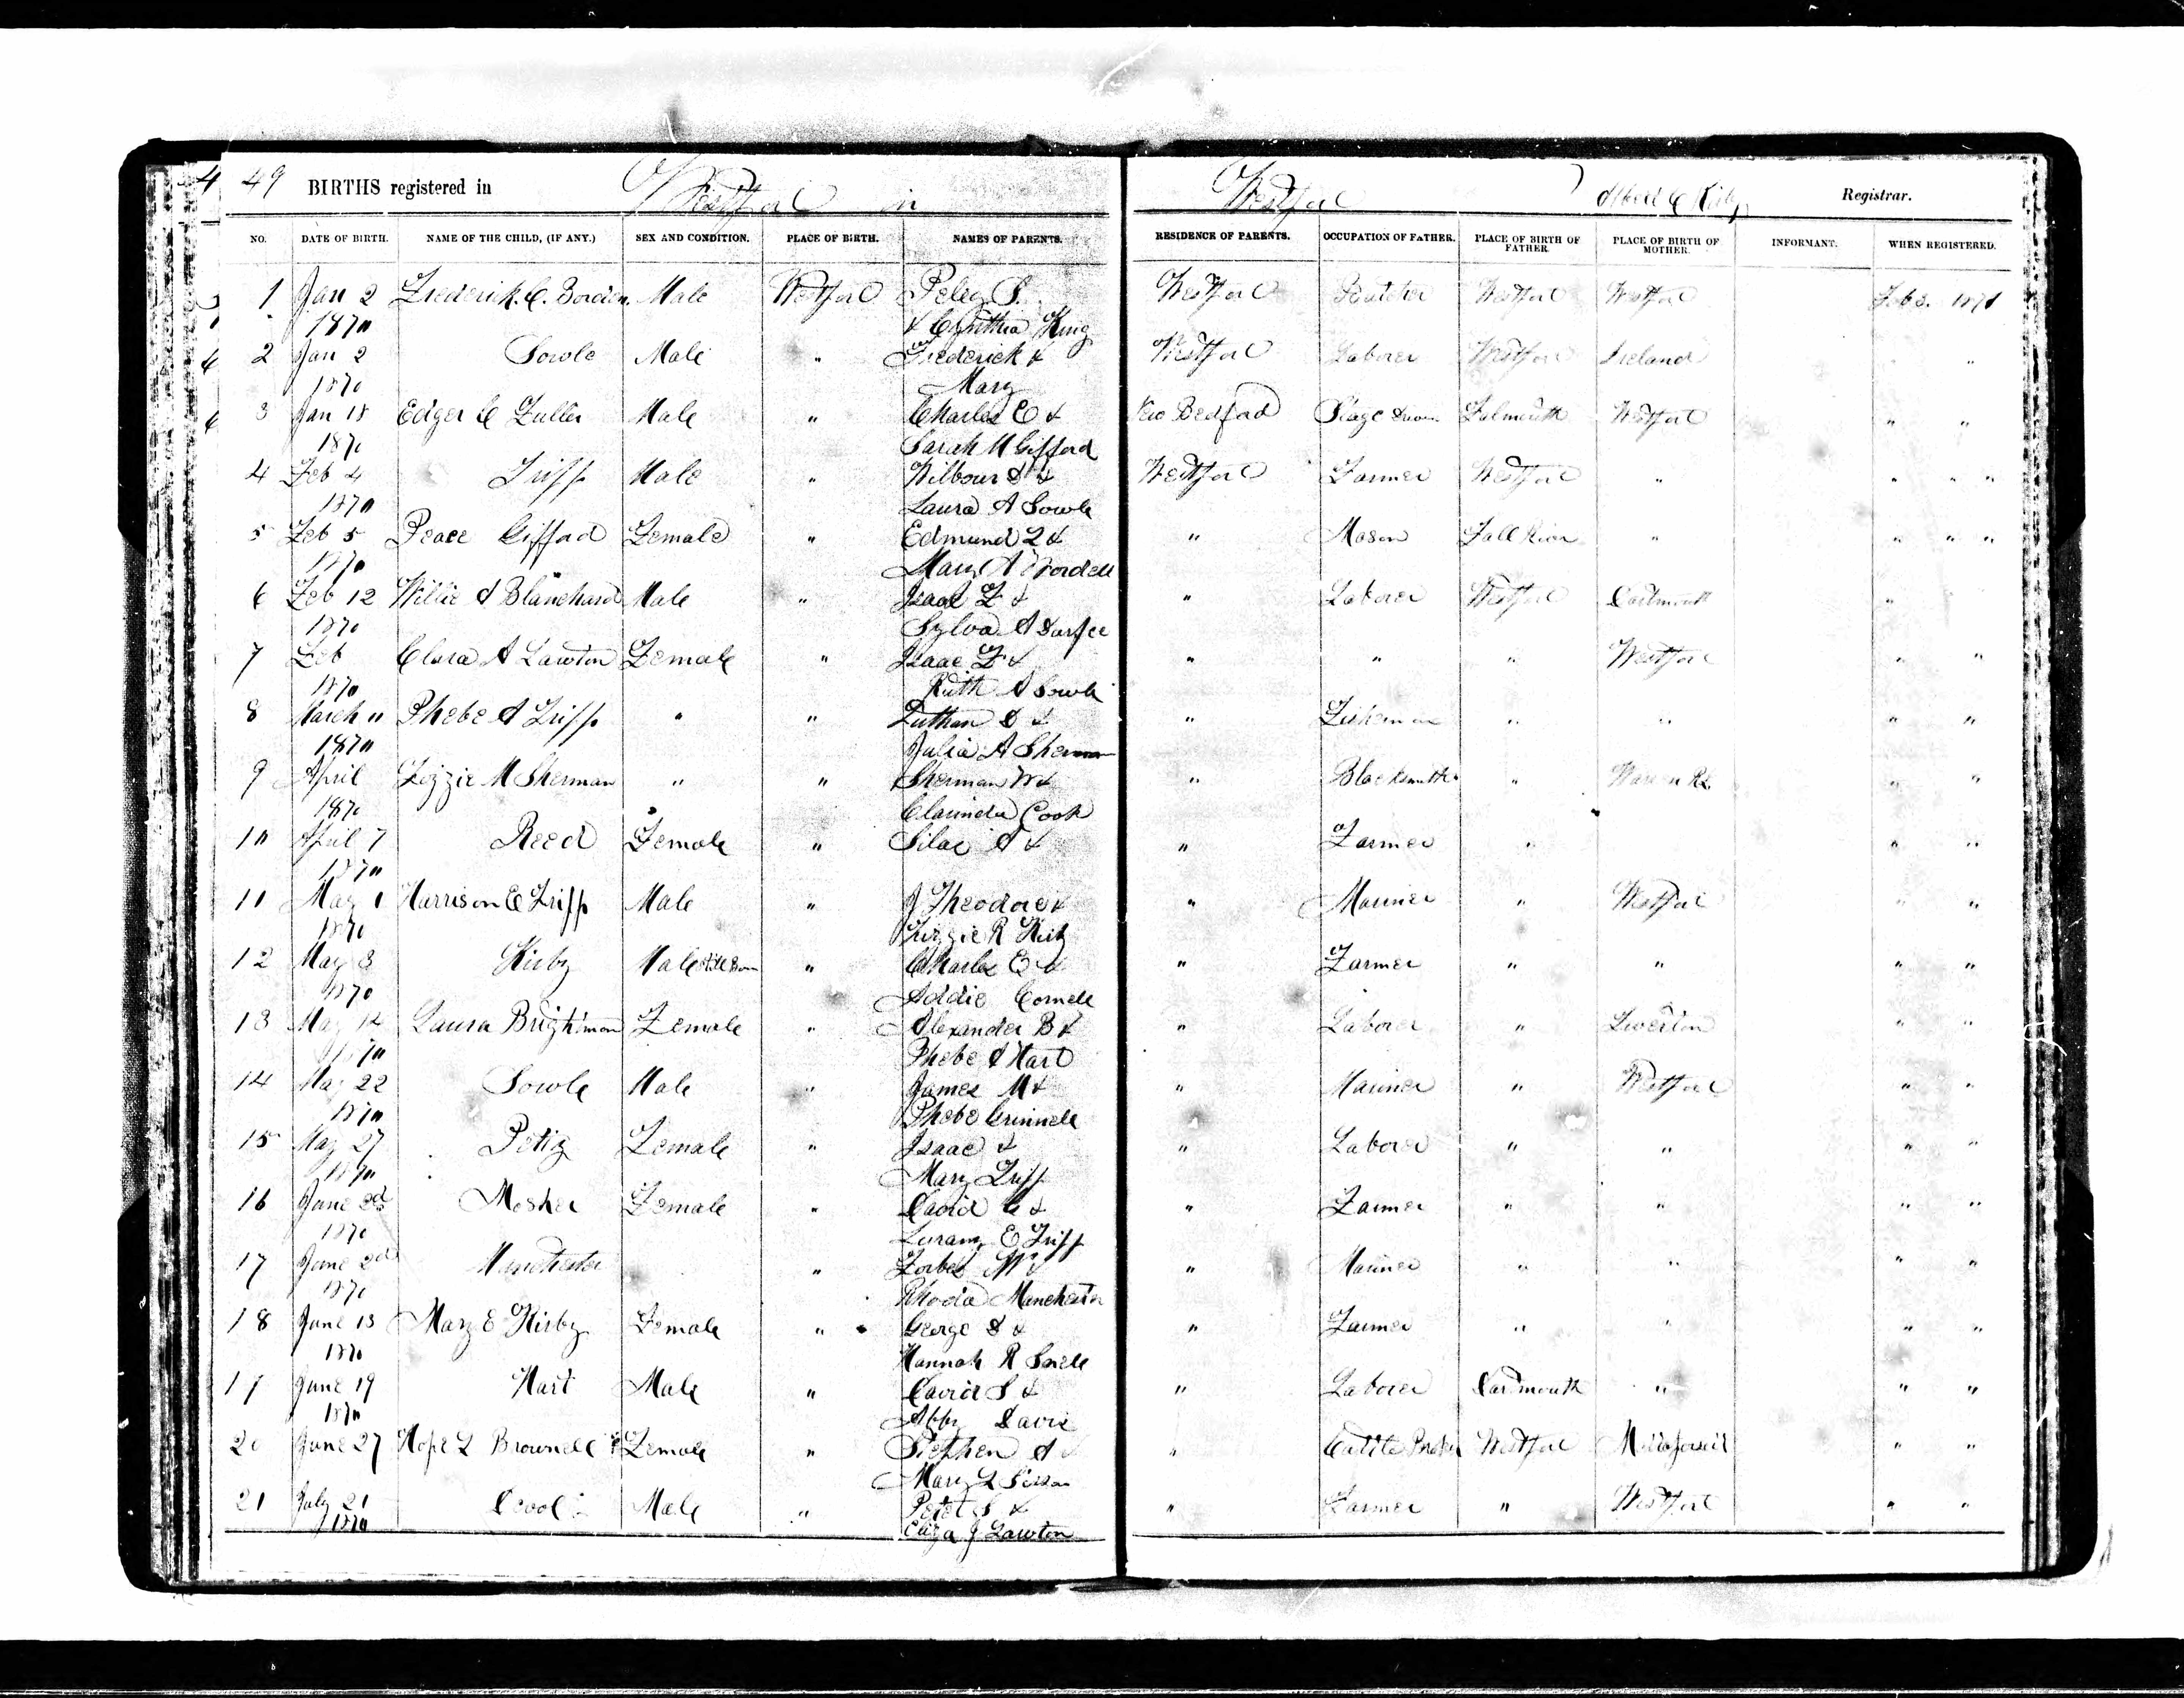 49 BIRTHS registered in Westport in Westport Albert C Kirby Registrar.
NO. DATE OF BIRTH. NAME OF THE CHILD, (IF ANY.) SEX AND CONDITION. PLACE OF BIRTH. NAMES OF PARENTS. RESIDENCE OF PARENTS. OCCUPATION OF FATHER. PLACE OF BIRTH OF FATHER. PLACE OF BIRTH OF MOTHER. INFORMANT. WHEN REGISTERED.
1 Jan 2 Frederick C. Borden Male Westport Peleg S. Westport Butcher Westport Westport Feb 3. 1871
1870 & Cynthia King
2 Jan 2 Sowle Male " Frederick & Westport Laborer Westport Ireland "
1870 Mary
3 Jan 18 Edger C Fuller Male " Charles C & New Bedford Stage Driver Falmouth Westport " "
1870 Sarah M Gifford
4 Feb 4 Tripp Male " Wilbour S & Westport Farmer Westport " " " "
1870 Laura A Sowle
5 Feb 5 Peace Gifford Female " Edmund L & " Mason Fall River " " " "
1870 Mary A Wordell
6 Feb 12 Willie A Blanchard Male " Isaac F & " Laborer Westport Dartmouth "
1870 Sylva A Durfee
7 Feb Clara A Lawton Female " Isaac F & " " " Westport " "
1870 Ruth A Sowle
8 March 11 Phebe A Tripp " " Luthan S & " Fisherman " " " "
1870 Julia A Sherman
9 April Lizzie M Sherman " " Sherman W & " Blacksmith " Warren RI. " "
1870 Clarinda Cook
10 April 7 Reed Female " Silas A & " Farmer " " "
1870
11 May 1 Harrison E Tripp Male " J Theodore & " Mariner " Westport " "
1870 Lizzie R Kirby
12 May 3 Kirby Male Still Born " Charles E & " Farmer " " " "
1870 Addie Cornell
13 May 12 Laura Brightman Female " Alexander B & " Laborer " Tiverton " "
1870 Phebe A Hart
14 May 22 Sowle Male " James M & " Mariner " Westport " "
1870 Phebe Grinnell
15 May 27 Petty Female " Isaac & " Laborer " " " "
1870 Mary Tripp
16 June 2d Mosher Female " David C & " Farmer " " " "
1870 Lurany E Tripp
17 June 2d Manchester " Forbes W & " Mariner " " " "
1870 Rhoda Manchester
18 June 13 Mary E Kirby Female " George S & " Farmer " " " "
1870 Hannah R Sowle
19 June 19 Hart Male " David S & " Laborer Dartmouth " " "
1870 Abby Davis
20 June 27 Hope L Brownell Female " Stephen A & " Cattle Broker Westport " "
1870 Mary L Sisson
21 July 21 Male " Peter S & " Farmer " Westport " "
1870 Eliza J Lawton